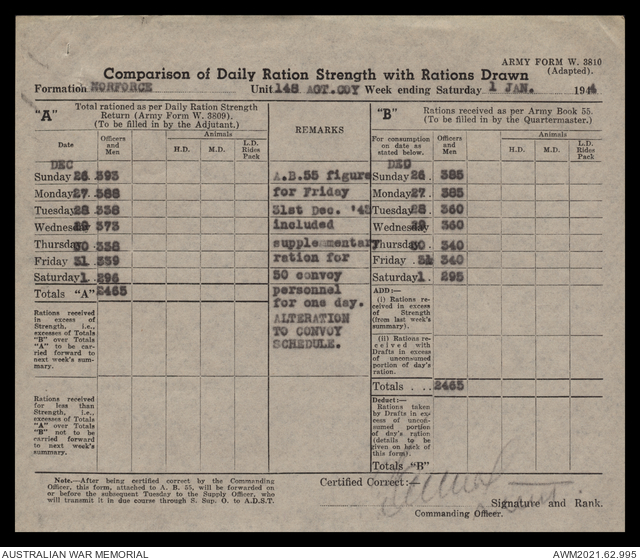 ARMY FORM W. 3810
(Adapted).
Comparison of Daily Ration Strength with Rations Drawn
Formation NORFORCE Unit 148 AGT.COY Week ending Saturday 1 JAN. 1944
"A" Total rationed as per Daily Ration Strength
Return (Army Form W. 3809).
(To be filled in by the Adjutant.)
Date
Officers and Men
Animals
H.D.
M.D.
L.D. Rides Pack
DEC
Sunday 26 393
Monday 27 388
Tuesday 28 338
Wednesday 29 373
Thursday 30 338
Friday 31 339
Saturday 1. 296
Totals "A" 2465
Rations received
in excess of
Strength, i.e.,
excesses of Totals
"B" over Totals
"A" to be car-
ried forward to
next week's sum-
mary.
Rations received
for less than
Strength, i.e.,
excesses of Totals
"A" over Totals
"B" not to be
carried forward to
next week's
summary.
REMARKS
A.B.55 figure
for Friday
31st Dec. '43
included
supplementary
ration for
50 convoy
personnel
for one day.
ALTERATION
TO CONVOY
SCHEDULE.
"B" Rations received as per Army Book 55.
(To be filled in by the Quartermaster.)
For consumption
on date as
stated below.
Officers and Men
Animals
H.D.
M.D.
L.D. Rides Pack
DEC
Sunday 26 385
Monday 27. 385
Tuesday 28 360
Wednesday 29 360
Thursday 30 340
Friday . 31 340
Saturday 1. 295
ADD:—
(i) Rations re-
ceived in excess
of Strength
(from last week's
summary).
(ii) Rations re-
ceived with
Drafts in excess
of unconsumed
portion of day's
ration.
Totals . . 2465
Deduct:—
Rations taken
by Drafts in ex-
cess of uncon-
sumed portion
of day's ration
(details to be
given on back of
this form).
Totals "B"
Note.—After being certified correct by the Commanding
Officer, this form, attached to A. B. 55, will be forwarded on
or before the subsequent Tuesday to the Supply Officer, who
will transmit it in due course through S. Sup. O. to A.D.S.T.
Certified Correct:—
Signature and Rank.
Commanding Officer.
AUSTRALIAN WAR MEMORIAL
AWM2021.62.995